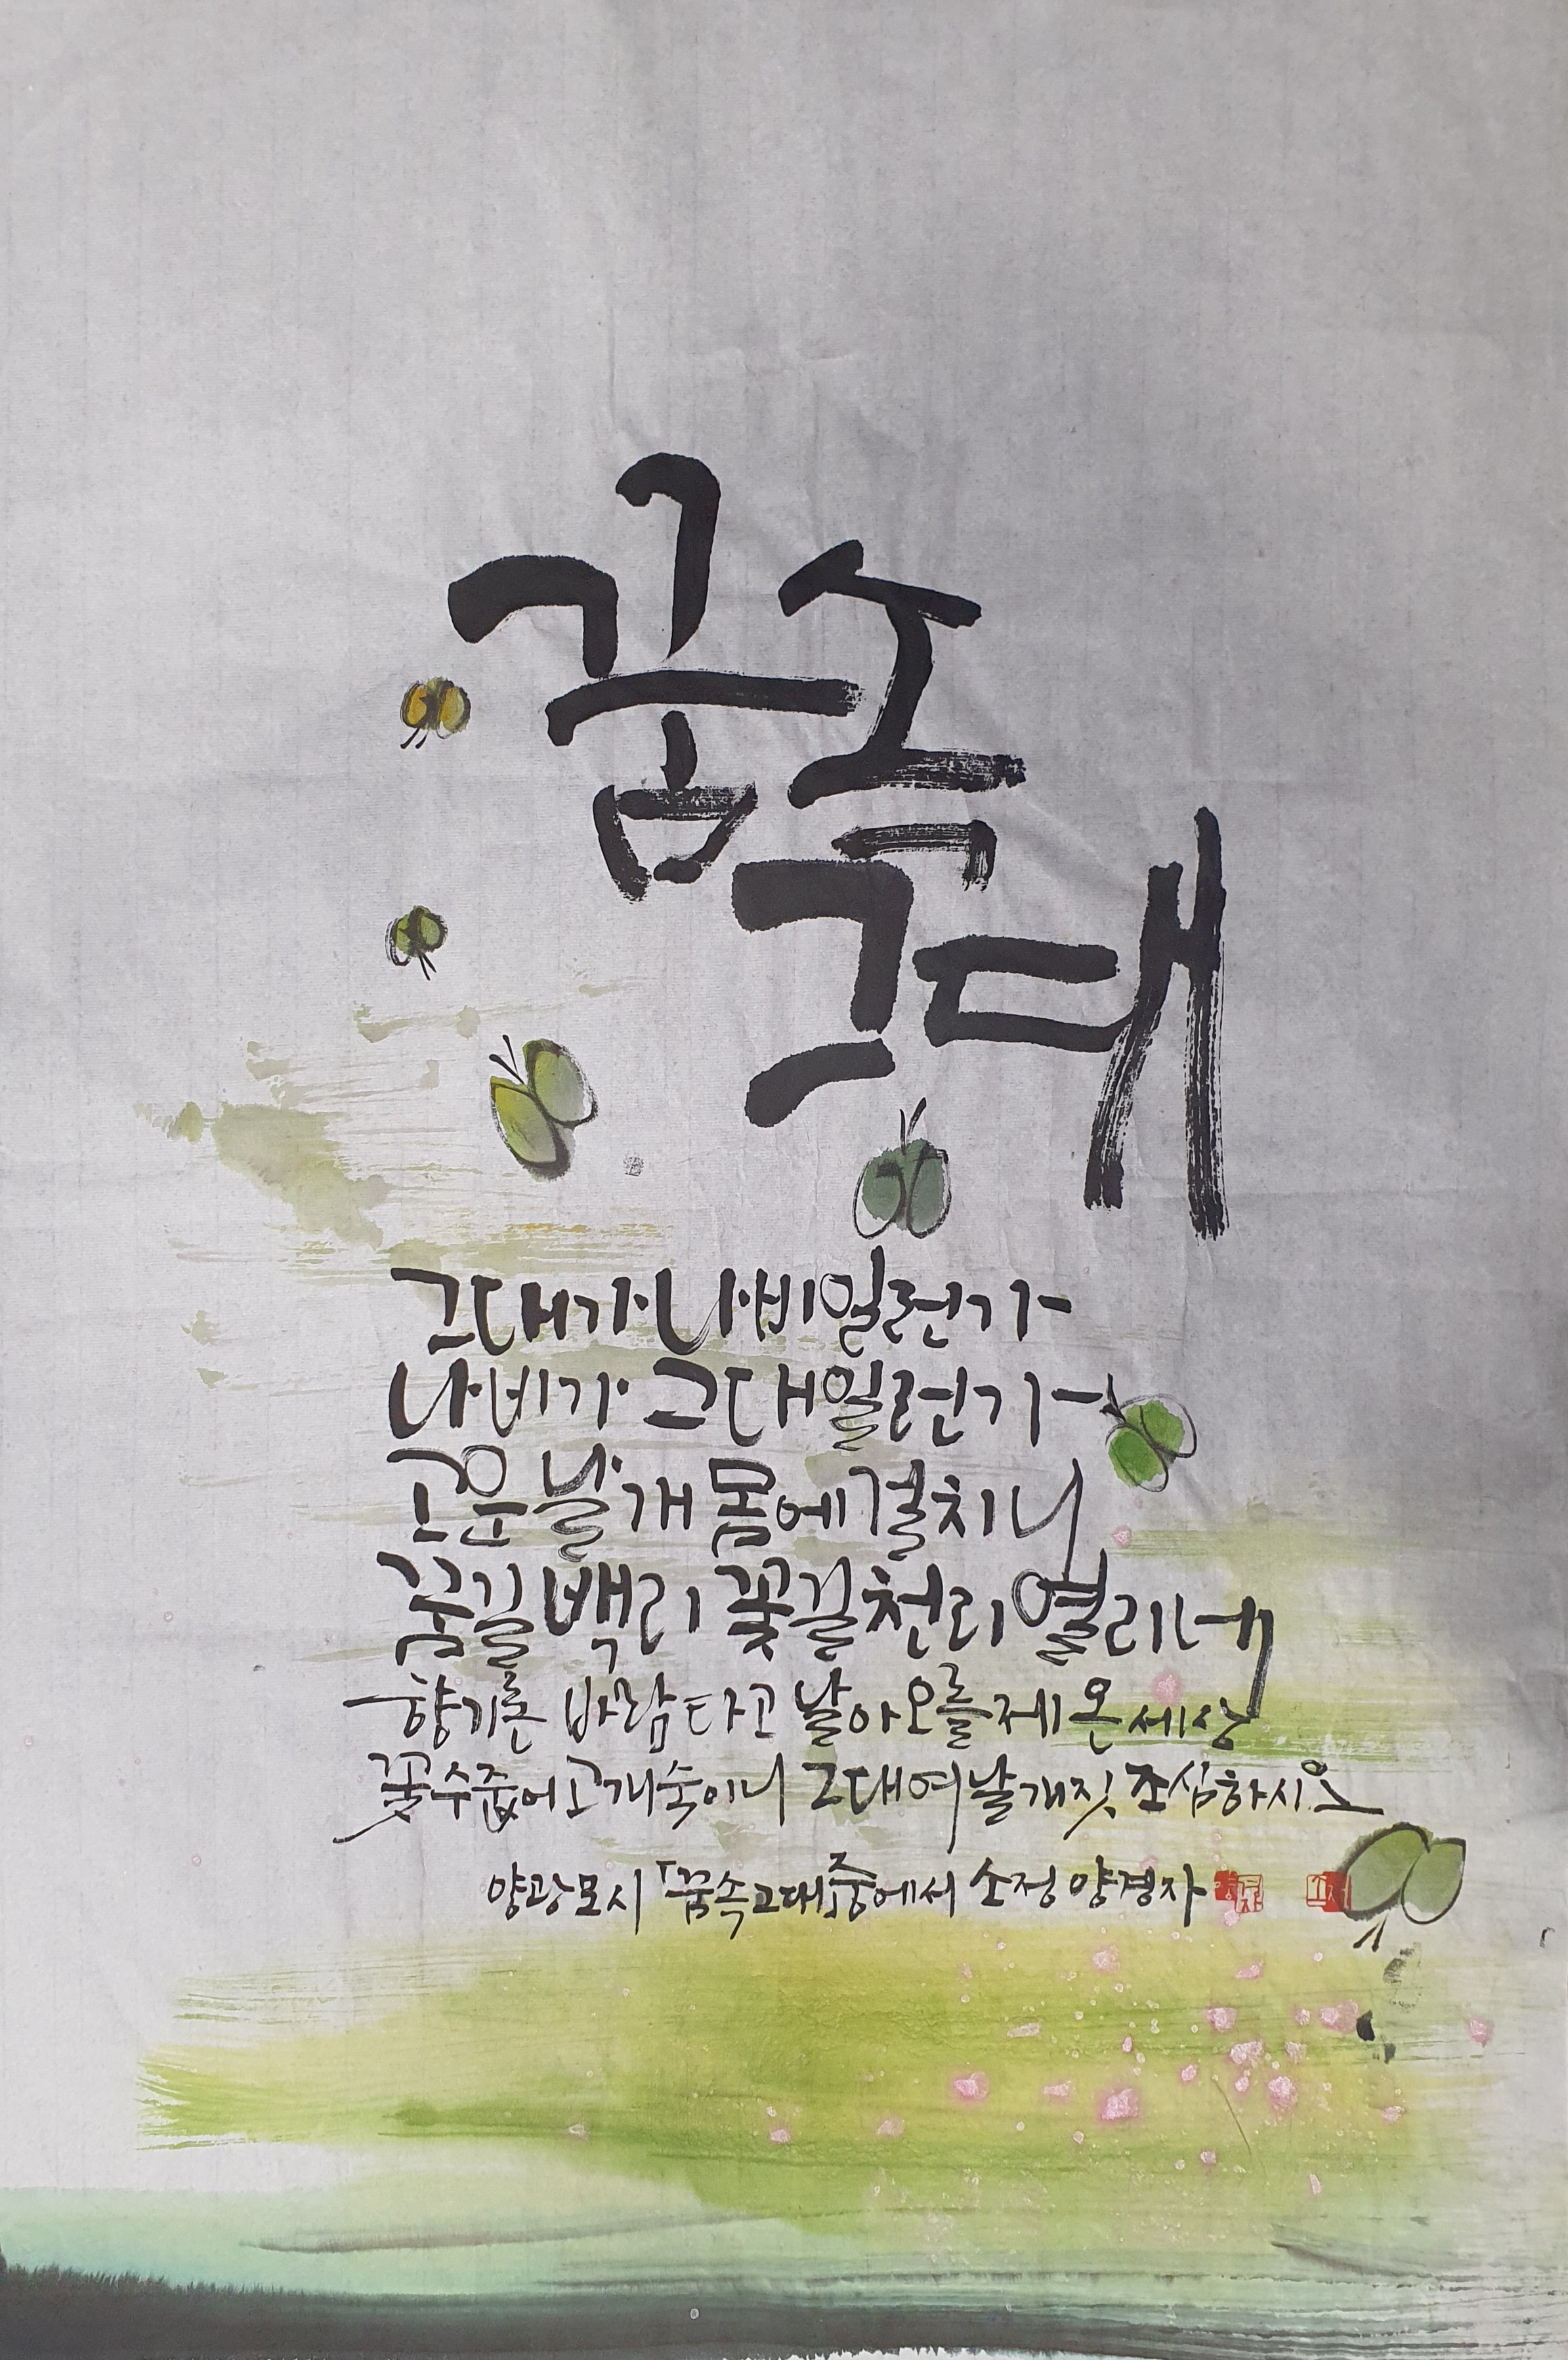 꿈속
그대
그대가 나비일런가
나비가 그대일런가
고운 날개 몸에 걸치니
꿈길 백리 꽃길 천리 열리네
향기론 바람 타고 날아오를제 온세상
꽃 수줍어 고개 숙이니 그대여 날개짓 조심하시오
양광모 시 「꿈속 그대」 중에서 소정 양경자